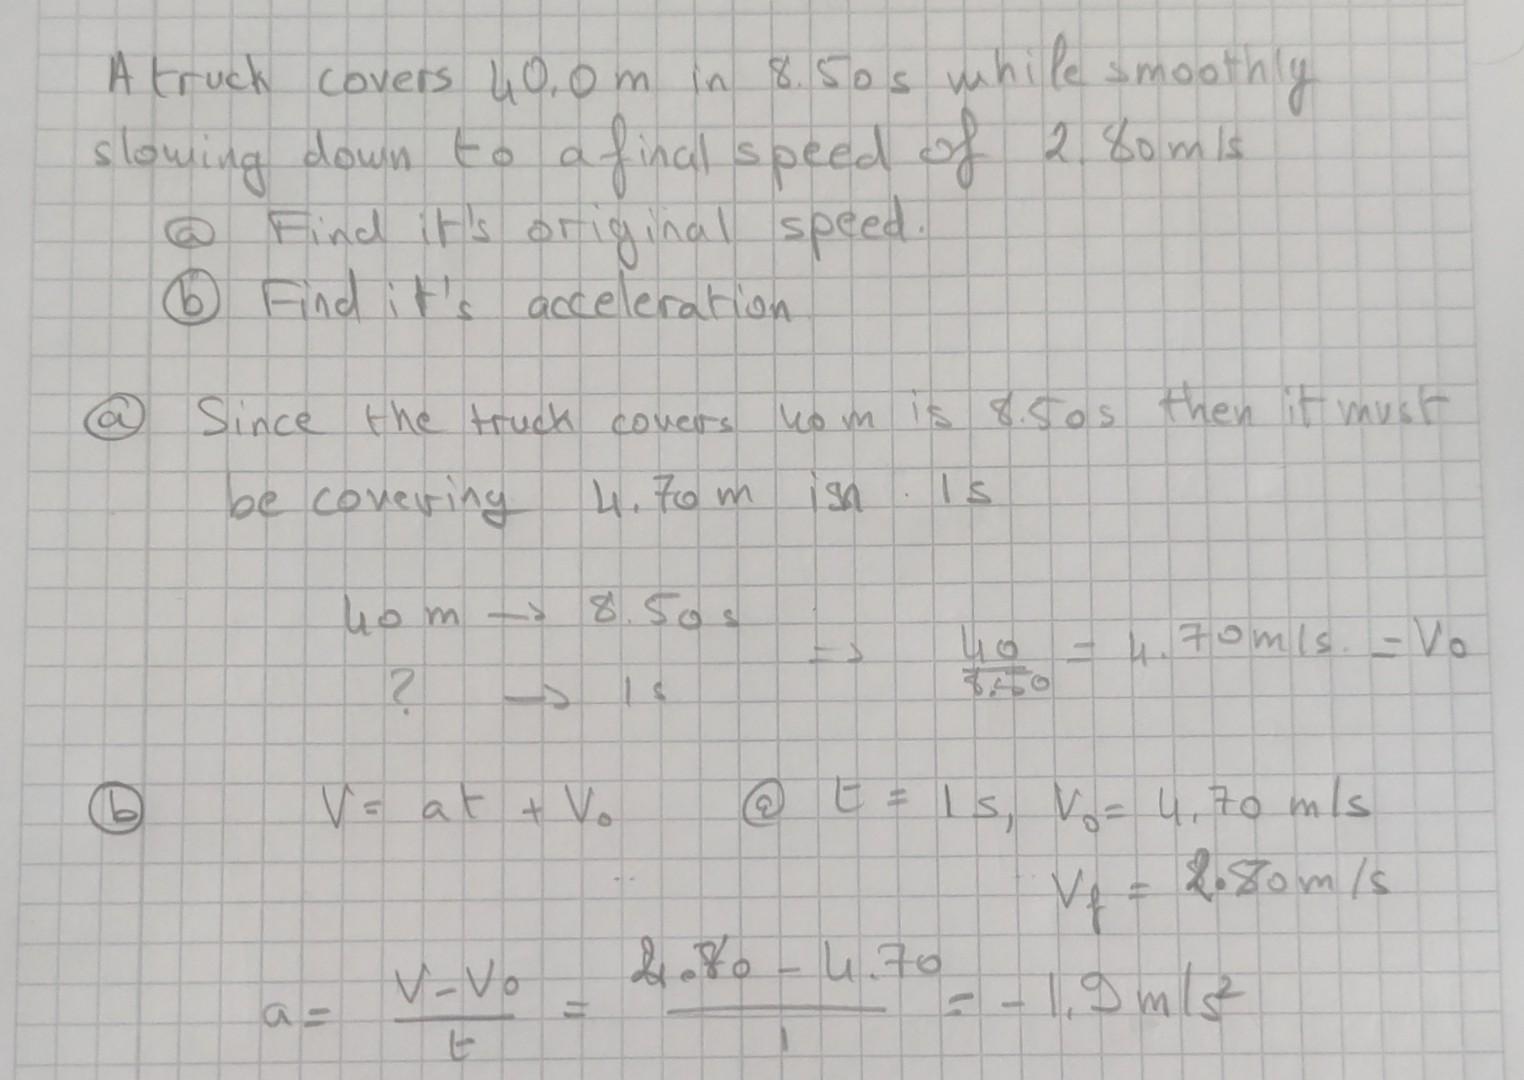 A truck covers 40.0m in 8.50s while smoothly
slowing down to a final speed of 2.80m/s
ⓐ Find it's original speed.
ⓑ Find it's acceleration
ⓐ Since the truck covers 40m is 8.50s then it must
be covering 4.70m isn 1s
40m → 8.50s
? → 1s
=> 40/8.50 = 4.70m/s. = V₀
ⓑ V = at + V₀ @ t = 1s, V₀ = 4.70 m/s
V_f = 2.80m/s
a = (V - V₀)/t = (2.80 - 4.70)/1 = -1.9m/s²